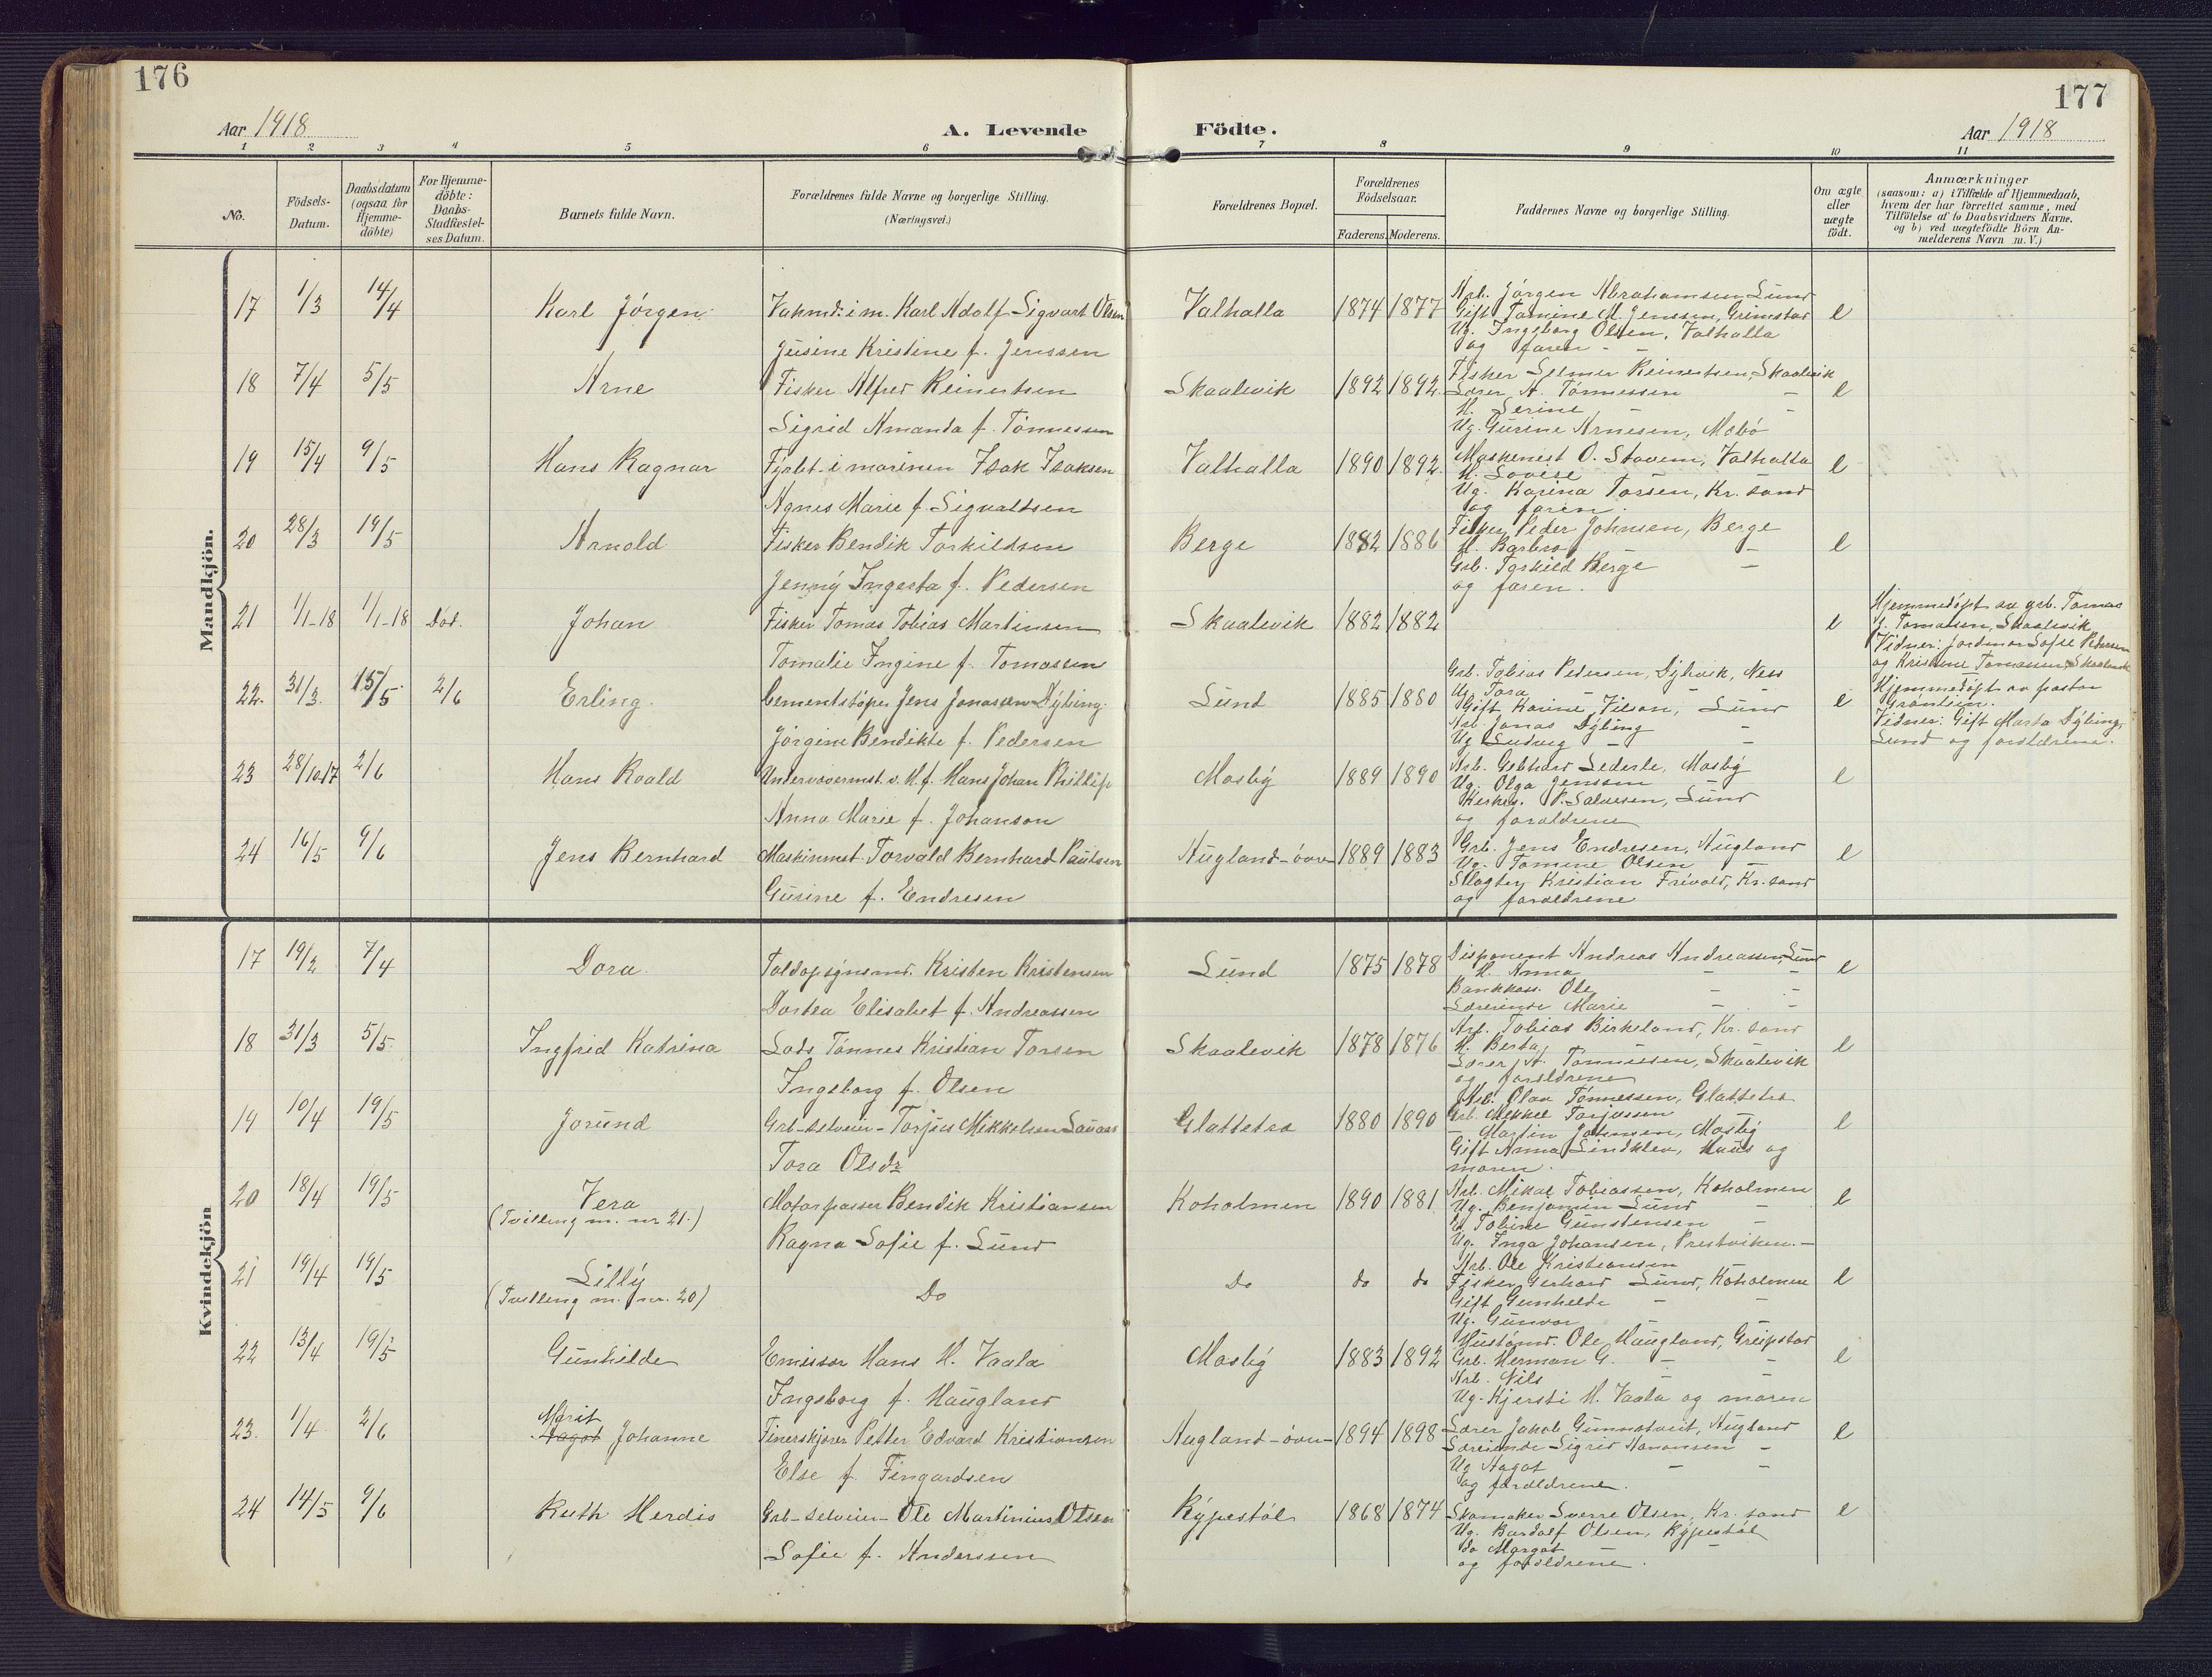 176
177
Aar 1918
A. Levende
Födte.
Aar 1918
1 2 3 4 5 6 7 8 9 10 11
No.
Födsels-
Datum.
Daabsdatum
(ogsaa for
Hjemme-
döbte)
For Hjemme-
döbte:
Daabs-
Stadfæstel-
ses Datum.
Barnets fulde Navn.
Forældrenes fulde Navne og borgerlige Stilling.
(Næringsvei.)
Forældrenes Bopæl.
Forældrenes
Födselsaar.
Faderens. Moderens.
Faddernes Navne og borgerlige Stilling.
Om ægte
eller
uægte
födt.
Anmærkninger
(saasom: a) i Tilfælde af Hjemmedaab,
hvem der har forrettet samme, med
Tilföielse af to Daabsvidners Navne,
og b) ved uægtefödte Börn An-
melderens Navn m. V.)
Mandkjön.
17 1/3 14/4 Karl Jörgen Karl Adolf Sigvart Olsen
Jusine Kristine f. Jenssen
Valhalla 1874 1877
Arb. Jörgen Abrahamsen Lund
Gift Tamine M. Jenssen, Grimstad
Ug. Ingeborg Olsen, Valhalla
og faren
e
18 7/4 5/5 Arne Fisker Alfred Reinertsen
Sigrid Amanda f. Tönnesen
Skaalevik 1892 1892
Fisker Selmer Reinertsen, Skaalevik
Lærer A. Tönnessen -
H. Serine - -
Ug. Gurine Arnesen, Mebö
e
19 15/4 9/5 Hans Ragnar Fyrbt. i marinen Isak Isaksen
Agnes Marie f. Sigvaltsen
Valhalla 1890 1892
Maskenist O. Stavem, Valhalla
H. Lovise
Ug. Karina Torsen, Kr. sand
og faren.
e
20 28/3 19/5 Arnold Fisker Bendik Torkildsen
Jenny Ingerta f. Pedersen
Berge 1882 1886
Fisker Peder Johnsen, Berge
H. Barbro -
Grb. Torkild Berge -
og faren.
e
21 1/1-18 1/1-18 Död. Johan Fisker Tomas Tobias Martinsen
Tomalie Ingine f. Tomassen
Skaalevik 1882 1882
e
Hjemmedöpt av grb. Tomas
J. Tomassen, Skaalevik
Vidner: Jordmor Sofie Pedersen
og Kristine Tomassen, Skaalevik
22. 31/3 15/5 2/6 Erling. Cementstöper Jens Jonassen Dybing.
Jörgine Bendikte f. Pedersen
Lund 1885 1880
Grb. Tobias Pedersen, Dybvik, Ness
Ug. Tora - -
Gift Karine Nilson, Lund
Arb. Jonas Dybing -
Ug Ludvig - -
e
Hjemmedöpt av pastor
Gröntsin.
Vidner: Gift Marta Dybing,
Lund og forældrene.
23 28/10 17 2/6 Hans Roald Undervovermst. v. H.f. Hans Johan Phillip
Anna Marie f. Johanson
Mosby 1889 1890
Arb. Gebhard Lederle, Mosby
Ug. Olga Jenssen
Kirkeg. P. Salvesen, Lund
og forældrene
e
24 16/5 9/6 Jens Bernhard Maskinmst. Torvald Bernhard Paulsen
Gurine f. Endresen
Augland-övre 1889 1883
Grb. Jens Endresen, Augland
Ug. Tomine Olsen -
Slagter Kristian Frivold, Kr. sand
og forældrene
e
Kvindekjön
17 19/2 7/4 Dora Toldopsynsmd. Kristen Kristensen
Dortea Elisabet f. Andreassen
Lund 1875 1878
Disponent Andreas Andreassen, Lund
H. Anna - -
Bankkass. Ole - -
Lærerinde Marie - -
e
18 31/3 5/5 Ingfrid Katrina Lods Tönnes Kristian Torsen
Ingeborg f. Olsen
Skaalevik 1878 1876
Arb. Tobias Birkeland, Kr. sand
H. Berta
Lærer A. Tönnesen, Skaalevik
og forældrene
e
19 10/4 19/5 Jorund Grb-selveier-Torjus Mikkelsen
Tora Olsdr
Glattetre 1880 1890
Arb. Olav Tönnessen, Glattetre
Grb. Mekkel Torjussen
- Martin Johnsen, Mosby
Gift Anna Lindklev, Haus og
moren.
e
20 18/4 19/5 Vera
(Tvilling m. nr 21.)
Motorpasser Bendik Kristiansen
Ragna Sofie f. Lund
Koholmen 1890 1881
Arb. Mikal Tobiassen, Koholmen
Ug. Benjamin Lund -
Ug Tobine Gunstensen -
Ug. Inga Johansen, Prestviken. -
e
21 19/4 19/5 Lilly
(Tvilling m. nr. 20)
Do
Do do do
Arb. Ole Kristiansen
Fisker Gerhard Lund, Koholmen
Gift Gunhilde - -
Ug. Gunvor -
e
22 13/4 19/5 Gunhilde Emissær Hans H. Vaala
Ingeborg f. Haugland
Mosby 1883 1892
Hustömr. Ole Haugland, Greipstad
Grb. Herman G. - -
Arb. Nils - -
Ug. Kjersti H. Vaala og moren
e
23. 1/4 2/6 Marit
Aagot Johanne Finerskjærer Petter Edvard Kristiansen
Else f. Fingardsen
Augland-övre- 1894 1898
Lærer Jakob Gunnstveit, Augland
Lærerinde Sigrid Aanonsen -
Ug Aagot - -
og forældrene.
e
24 14/5 9/6 Ruth Herdis Grb-selveier- Ole Martinius Olsen
Sofie f. Anderssen
Rypestöl 1868 1874
Skomaker Sverre Olsen, Kr. sand
Ug. Bardolf Olsen, Rypestöl
do Margot - -
og forældrene.
e